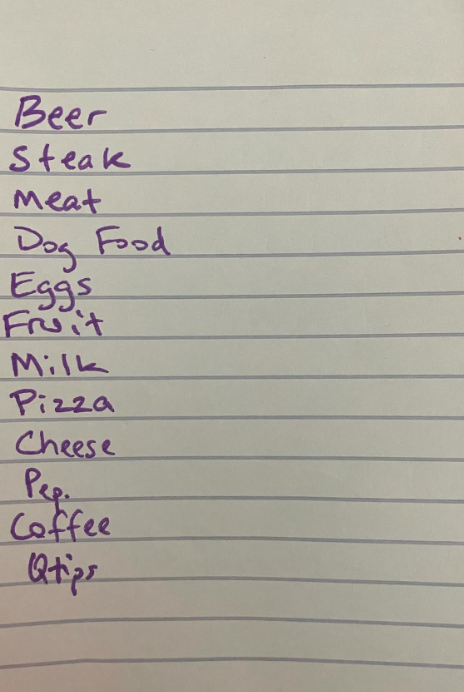 Beer
Steak
Meat
Dog Food
Eggs
Fruit
Milk
Pizza
Cheese
Pep.
Coffee
Qtips